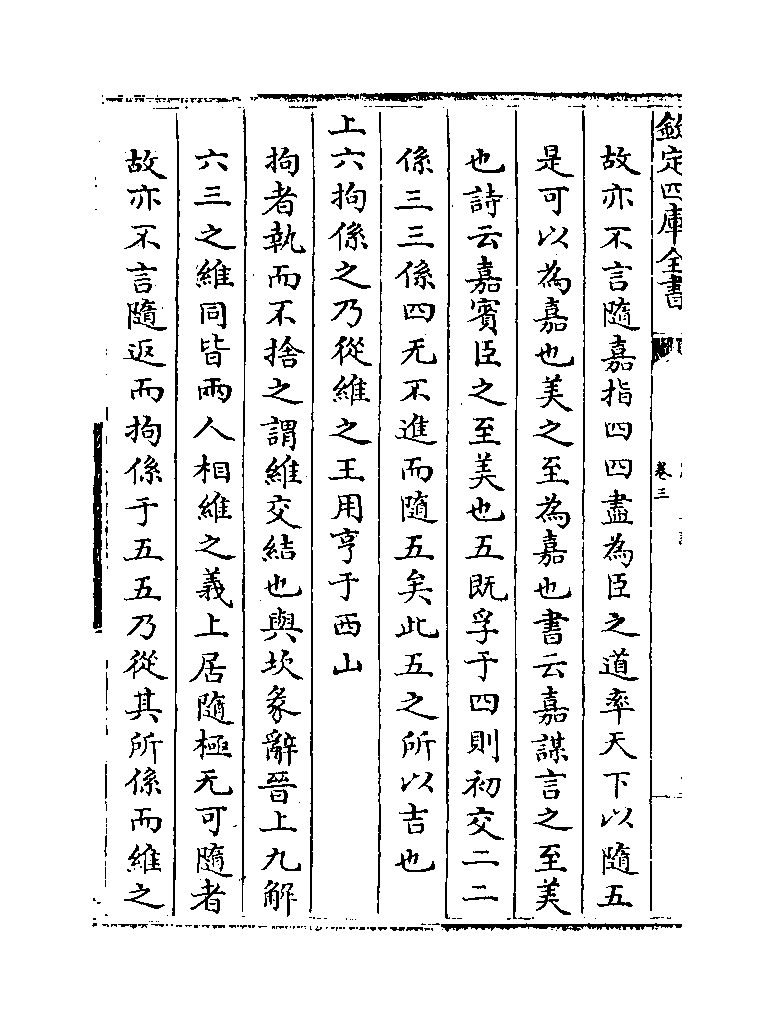 欽定四庫全書
卷三
故亦不言隨嘉指四四盡為臣之道率天下以隨五
是可以為嘉也美之至為嘉也書云嘉謀言之至美
也詩云嘉賓臣之至美也五既孚于四則初交二二
係三三係四无不進而隨五矣此五之所以吉也
上六拘係之乃從維之王用亨于西山
拘者執而不捨之謂維交結也與坎彖辭晉上九解
六三之維同皆兩人相維之義上居隨極无可隨者
故亦不言隨返而拘係于五五乃從其所係而維之